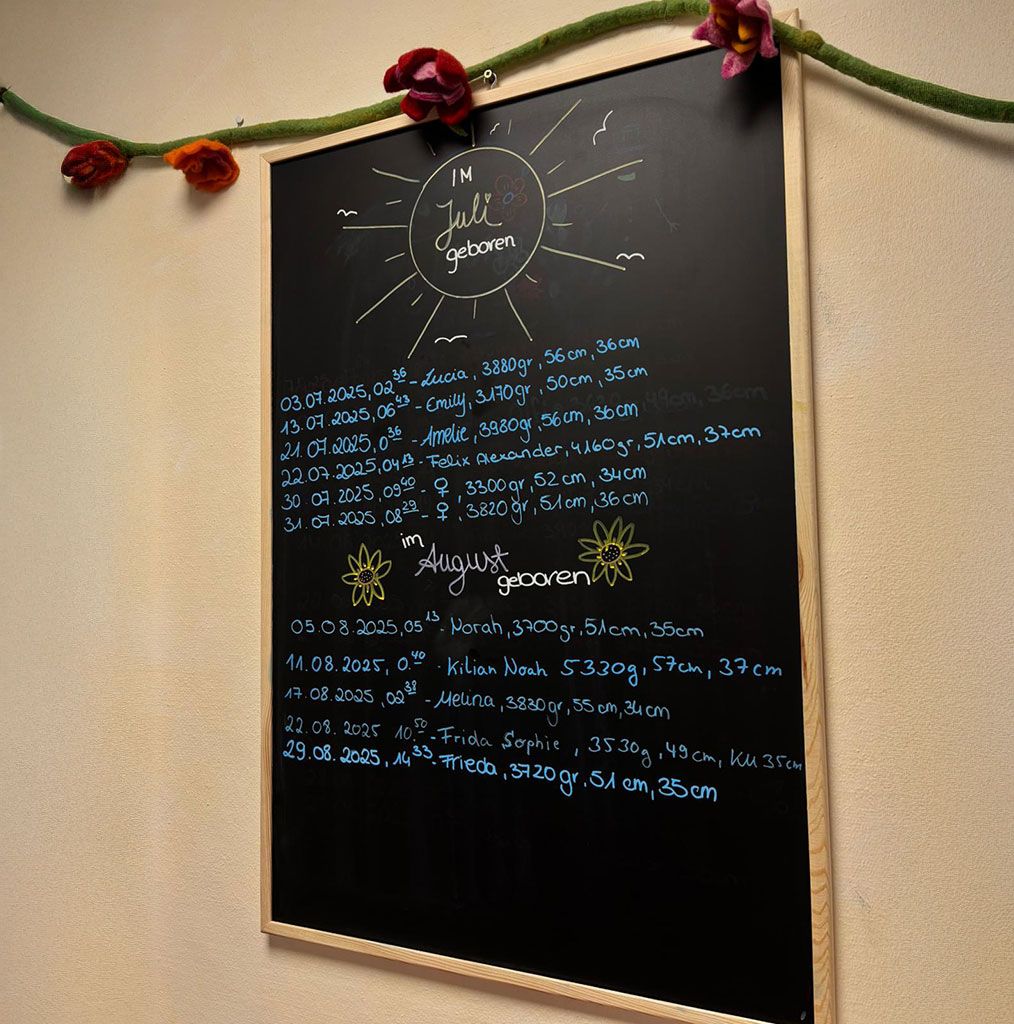 IM
Juli
geboren
03.07.2025, 02³⁶ - Lucia, 3880gr, 56cm, 36cm
13.07.2025, 06⁴³ - Emily, 3170gr, 50cm, 35cm
21.07.2025, 0³⁶ - Amelie, 3980gr, 56cm, 36cm
22.07.2025, 04¹³ - Felix Alexander, 4160gr, 51cm, 37cm
30.07.2025, 09⁴⁰ - ♀, 3300gr, 52cm, 34cm
31.07.2025, 08²⁹ - ♀, 3820gr, 51cm, 36cm
im
August
geboren
05.08.2025, 05¹³ - Norah, 3700gr, 51cm, 35cm
11.08.2025, 0.⁴⁰ - Kilian Noah 5330g, 57cm, 37cm
17.08.2025, 02³⁸ - Melina, 3830gr, 55cm, 34cm
22.08.2025 10.⁵⁰ - Frida Sophie, 3530g, 49cm, KU 35cm
29.08.2025, 14³³ - Frieda, 3720gr, 51cm, 35cm